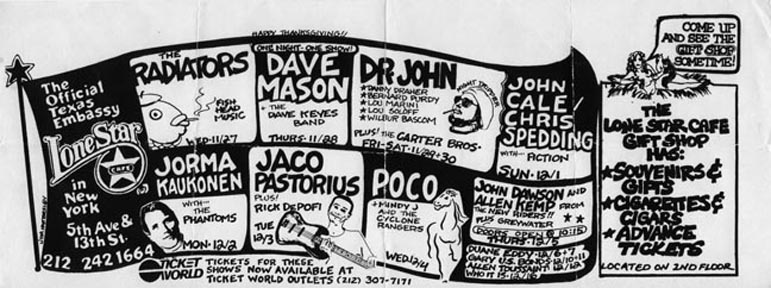 HAPPY THANKSGIVING!!
The
Official
Texas
Embassy
Lone Star
CAFE
in
New
York
5th Ave &
13th St.
212 242 1664
THE
RADIATORS
FISH
HEAD
MUSIC
WED-11/27
ONE NIGHT-ONE SHOW!
DAVE
MASON
+ THE
DAVE KEYES
BAND
THURS-11/28
DR. JOHN
NIGHT TRIPPER
★DANNY DRAHER
★BERNARD PURDY
★LOU MARINI
★LOU SOLOFF
★WILBUR BASCOM
PLUS! THE CARTER BROS.
FRI-SAT-11/29+30
JOHN
CALE/
CHRIS
SPEDDING
WITH... FICTION
SUN-12/1
JORMA
KAUKONEN
WITH...
THE
PHANTOMS
MON-12/2
JACO
PASTORIUS
PLUS!
RICK DEPOFI
TUE
12/3
POCO
+MINDY J
AND THE
CYCLONE
RANGERS
WED 12/4
JOHN DAWSON AND
ALLEN KEMP FROM
THE NEW RIDERS!!
PLUS GREYWATER
DOORS OPEN @ 10:15
THURS-12/5
DUANE EDDY-12/6+7
GARY U.S. BONDS-12/10+11
ALLEN TOUSSAINT-12/12
TICKET
WORLD
TICKETS FOR THESE
SHOWS NOW AVAILABLE AT
TICKET WORLD OUTLETS (212) 307-7171
COME UP
AND SEE THE
GIFT SHOP
SOMETIME!
THE
LONE STAR CAFE
GIFT SHOP
HAS:
★SOUVENIRS &
GIFTS
★CIGARETTES &
CIGARS
★ADVANCE
TICKETS
LOCATED ON 2ND FLOOR